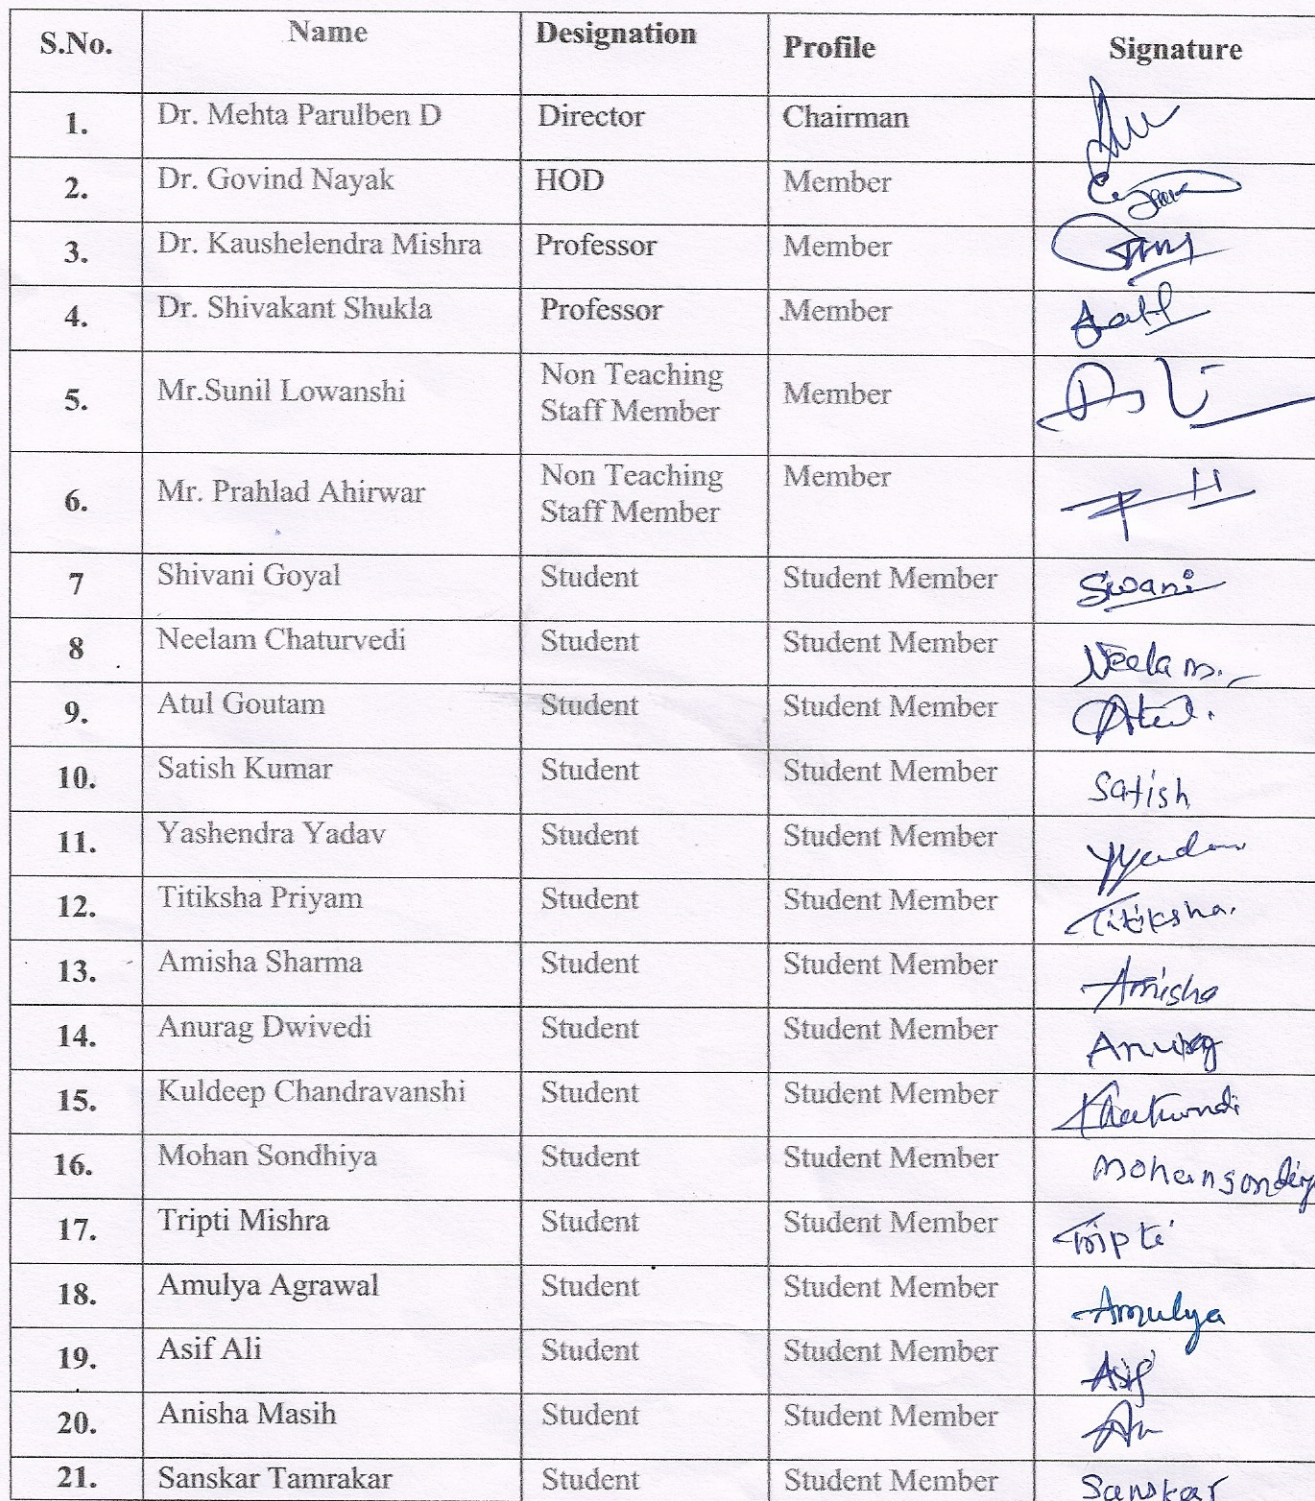 S.No. Name Designation Profile Signature
1. Dr. Mehta Parulben D Director Chairman
2. Dr. Govind Nayak HOD Member
3. Dr. Kaushelendra Mishra Professor Member
4. Dr. Shivakant Shukla Professor .Member
5. Mr.Sunil Lowanshi Non Teaching Member
Staff Member
6. Mr. Prahlad Ahirwar Non Teaching Member
Staff Member
7 Shivani Goyal Student Student Member
8 Neelam Chaturvedi Student Student Member Neelam.
9. Atul Goutam Student Student Member Atul.
10. Satish Kumar Student Student Member Satish
11. Yashendra Yadav Student Student Member
12. Titiksha Priyam Student Student Member Titiksha.
13. Amisha Sharma Student Student Member Amisha
14. Anurag Dwivedi Student Student Member Anurag
15. Kuldeep Chandravanshi Student Student Member
16. Mohan Sondhiya Student Student Member
17. Tripti Mishra Student Student Member Tripti
18. Amulya Agrawal Student Student Member Amulya
19. Asif Ali Student Student Member Asif
20. Anisha Masih Student Student Member
21. Sanskar Tamrakar Student Student Member Sanskar